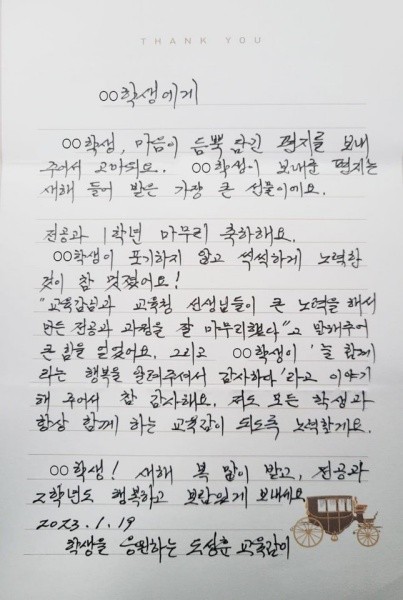 THANK YOU
○○학생에게
○○학생, 마음이 듬뿍 담긴 편지를 보내
주어서 고마워요. ○○학생이 보내준 편지는
새해 들어 받은 가장 큰 선물이에요.
전공과 1학년 마무리 축하해요.
○○학생이 포기하지 않고 씩씩하게 노력한
것이 참 멋졌어요!
"교육감님과 교육청 선생님들이 큰 노력을 해서
만든 전공과 과정을 잘 마무리했다"고 말해주어
큰 힘을 얻었어요. 그리고 ○○학생이 '늘 함께
라는 행복을 알려주셔서 감사하다'라고 이야기
해 주어서 참 감사해요. 저도 모든 학생과
항상 함께 하는 교육감이 되도록 노력할게요.
○○학생! 새해 복 많이 받고, 전공과
2학년도 행복하고 보람있게 보내세요.
2023.1.19
학생을 응원하는 도성훈 교육감이